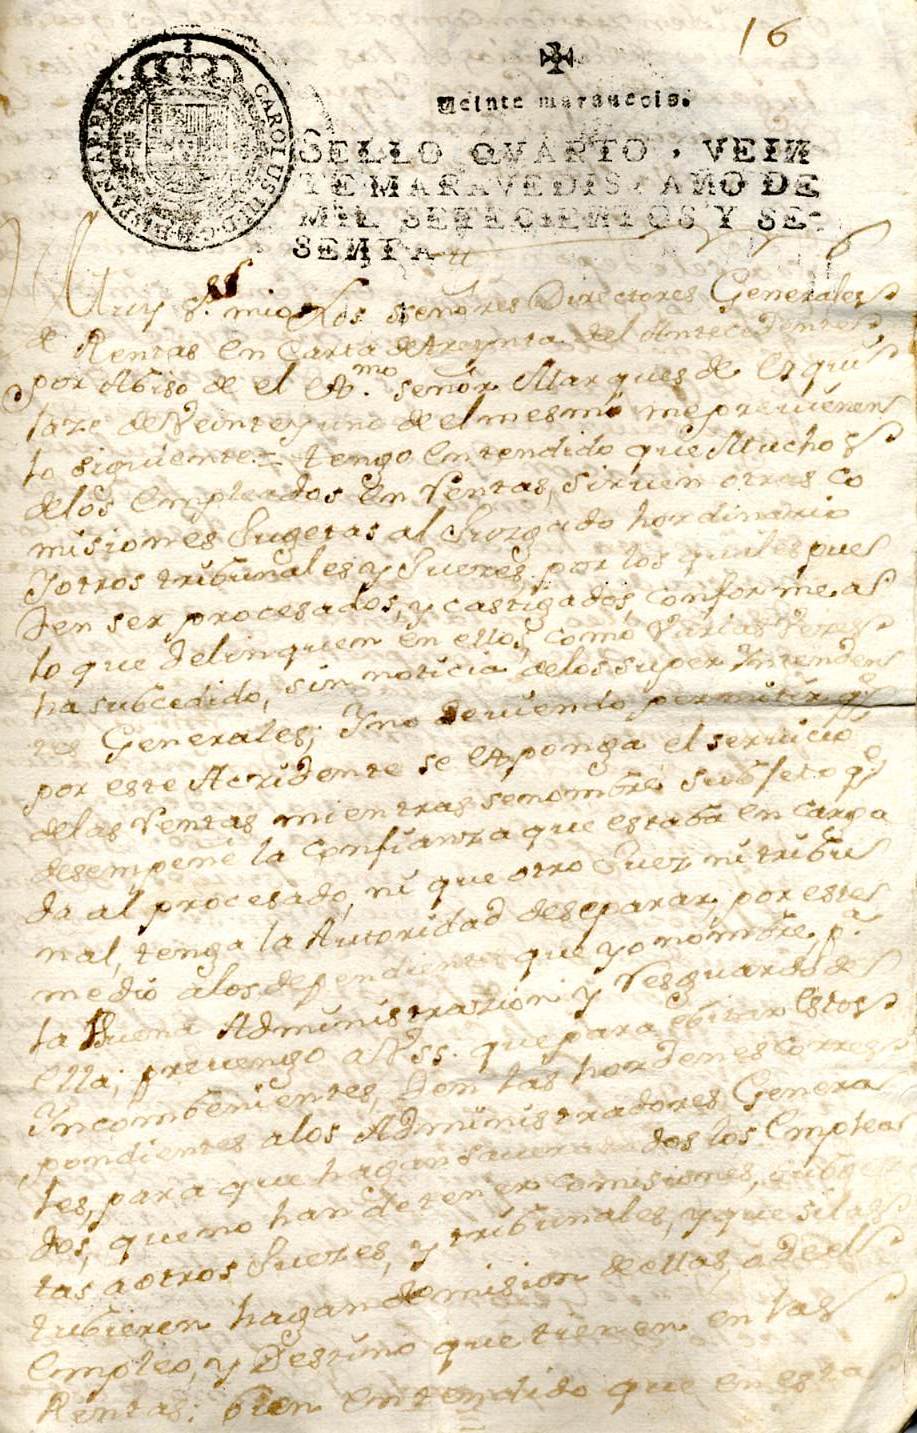 16
Veinte marauedis.
CAROLUS III D.G. HISPANIAR. REX.
SELLO QVARTO, VEIN
TE MARAVEDIS, AÑO DE
MIL SETECIENTOS Y SE-
SENTA
Muy S.r mio Los señores Directores Generales
de Rentas en Carta de treynta del Antecedente
por Abiso de el Ex.mo señor Marques de Esqui
laze de Veinte y uno de el mesmo me previenen
lo siguiente = tengo entendido que Muchos
delos Empleados en Rentas, sirven otras co
misiones sugetas al Juzgado hordinario
Y otros tribunales y Juezes, por los quales pue
den ser procesados, y castigados, conforme a
lo que delinquen en ellos, como Varias Vezes
ha subcedido, sin noticia de los super Yntenden
tes Generales; Y no deviendo permitir q.e
por este Accidente se exponga el servicio
delas Rentas mientras se nombre Subjeto q.e
desempeñe la Confianza que estaba en carga
da al procesado, ni que otro Juez ni tribu
nal, tenga la Autoridad de separar, por este
medio alos dependientes que yo nombre p.a
la Buena Administrazion y Resguardo de
ella; prevengo a V.SS. que para ebitar estos
Yncombenientes, den las hordenes corres
pondientes alos Administradores Genera
les, para que hagan saver a todos los Emplea
dos, que no han de tener comisiones, subge
tas a otros Juezes, y tribunales, y que si las
tubieren hagan demision de ellas, o de el
Empleo, y Destino que tienen en las
Rentas; bien entendido que en esta